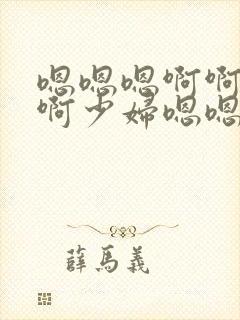 嗯嗯嗯啊啊
啊少婦嗯嗯
薛馬義